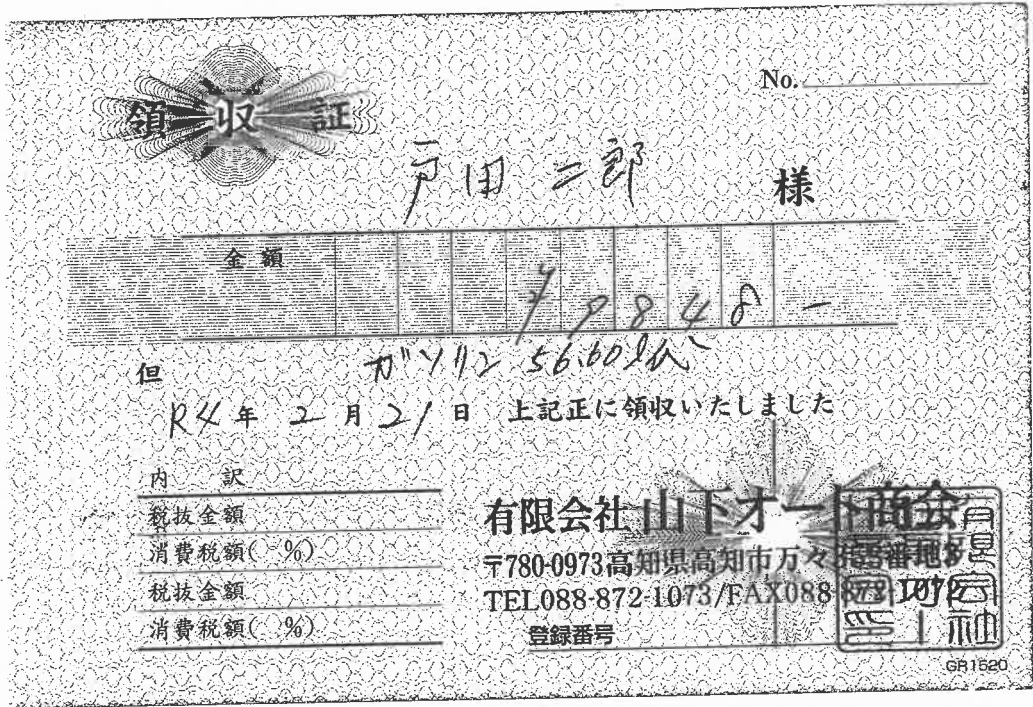 No.
領収証
戸田 二郎 様
金額 ¥9848-
但 ガソリン 56.60ℓ代
R4年 2月21日 上記正に領収いたしました
内 訳
税抜金額
消費税額( %)
税抜金額
消費税額( %)
有限会社 山下オート商会
〒780-0973高知県高知市万々
TEL088-872-1073/FAX088-872-1072
登録番号
GR1520